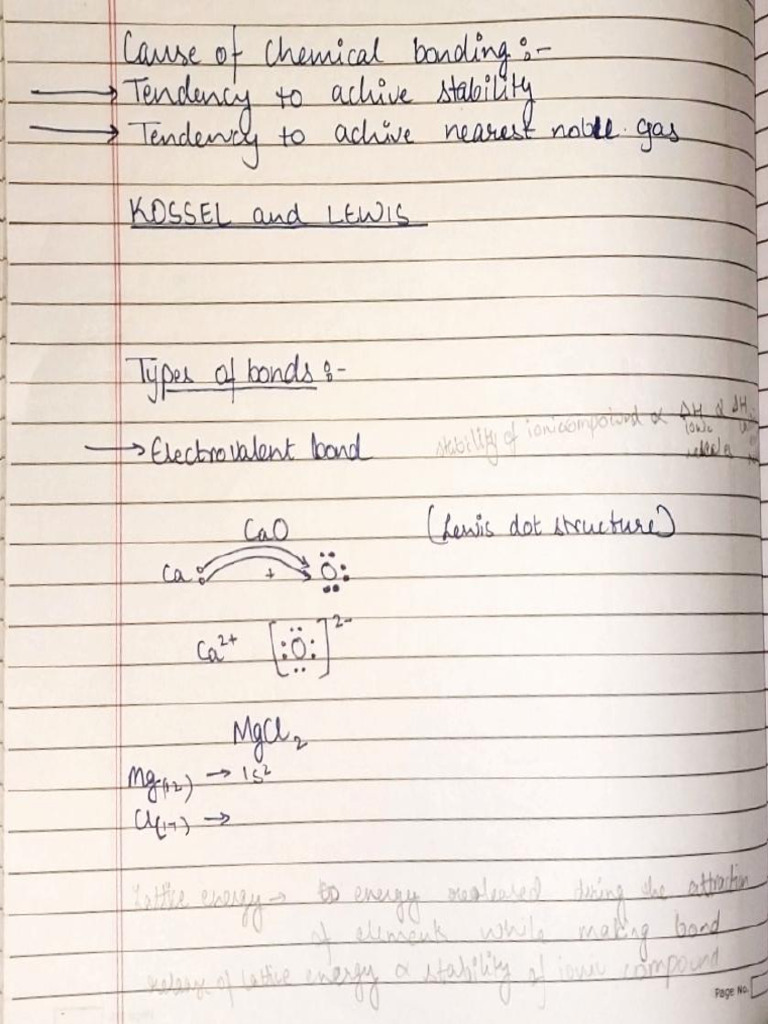 Cause of Chemical bonding :-
→ Tendency to achive stability
→ Tendency to achive nearest noble gas
KOSSEL and LEWIS
Types of bonds :-
stability of ionic compound ∝ ΔH ∝ ΔH
ionic
→ Electrovalent bond
CaO (Lewis dot structure)
Ca + O
Ca²⁺ [:O:]²⁻
MgCl₂
Mg(12) → 1s²
Cl(17) →
Lattice energy → energy realeased during the attraction
of elements while making bond
release of lattice energy ∝ stability of ionic compound
Page No.